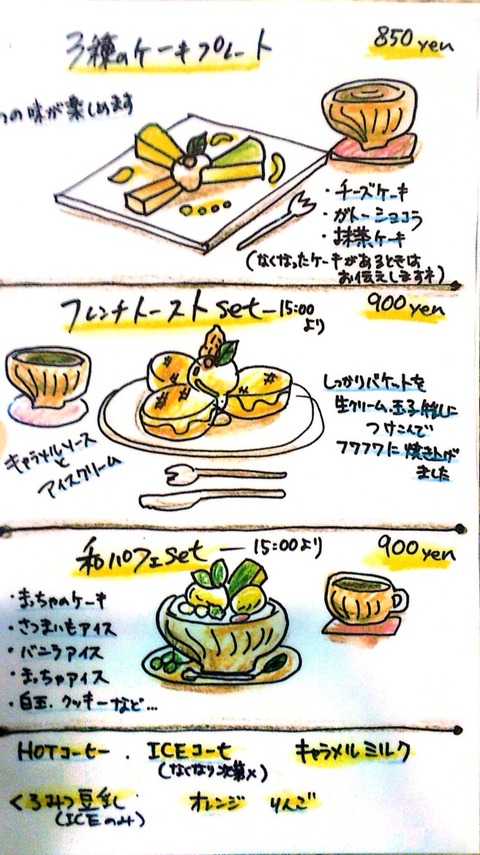 3種のケーキプレート
850 yen
つの味が楽しめます
・チーズケーキ
・ガトーショコラ
・抹茶ケーキ
(なくなったケーキがあるときは
お伝えしますネ)
フレンチトーストset - 15:00
より
900 yen
しっかりバケットを
生クリーム、玉子
つけこんで
フワフワに焼き上げ
ました
キャラメルソース
と
アイスクリーム
和パフェset - 15:00より
900 yen
・まっちゃのケーキ
・さつまいもアイス
・バニラアイス
・まっちゃアイス
・白玉、クッキーなど...
HOTコーヒー . ICEコーヒ キャラメルミルク
(なくなり次第×)
くるみつ豆乳し オレンジ りんご
(ICEのみ)